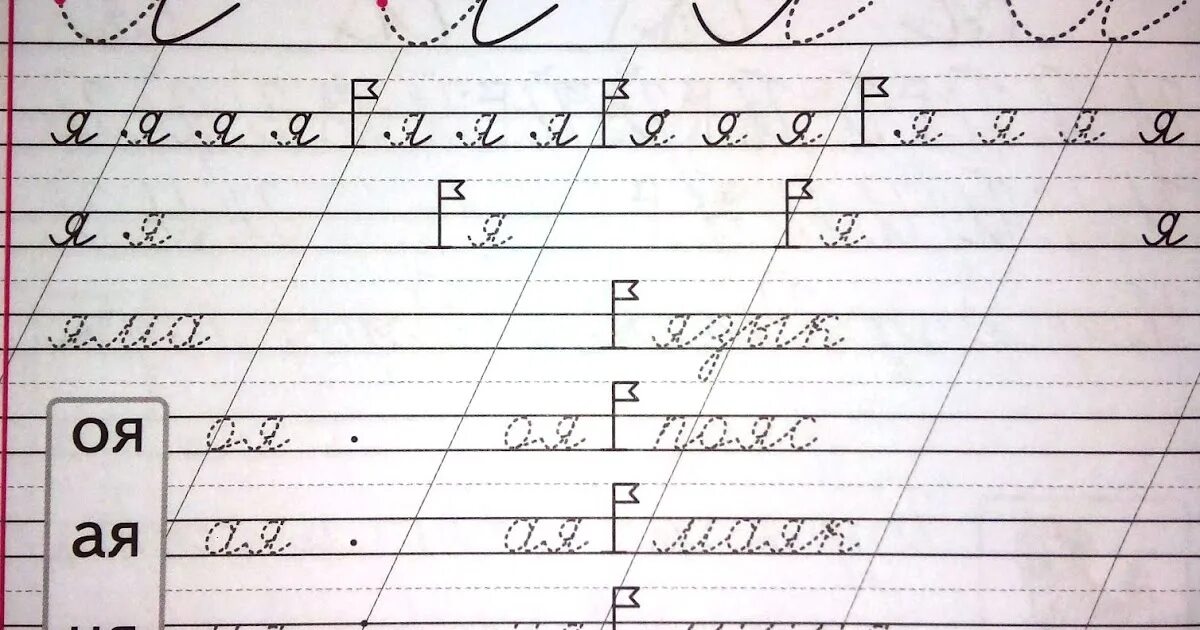 я я я я я я я я я я я я я я
я я я я я
яма язык
оя оя оя пояс
ая ая ая маяк